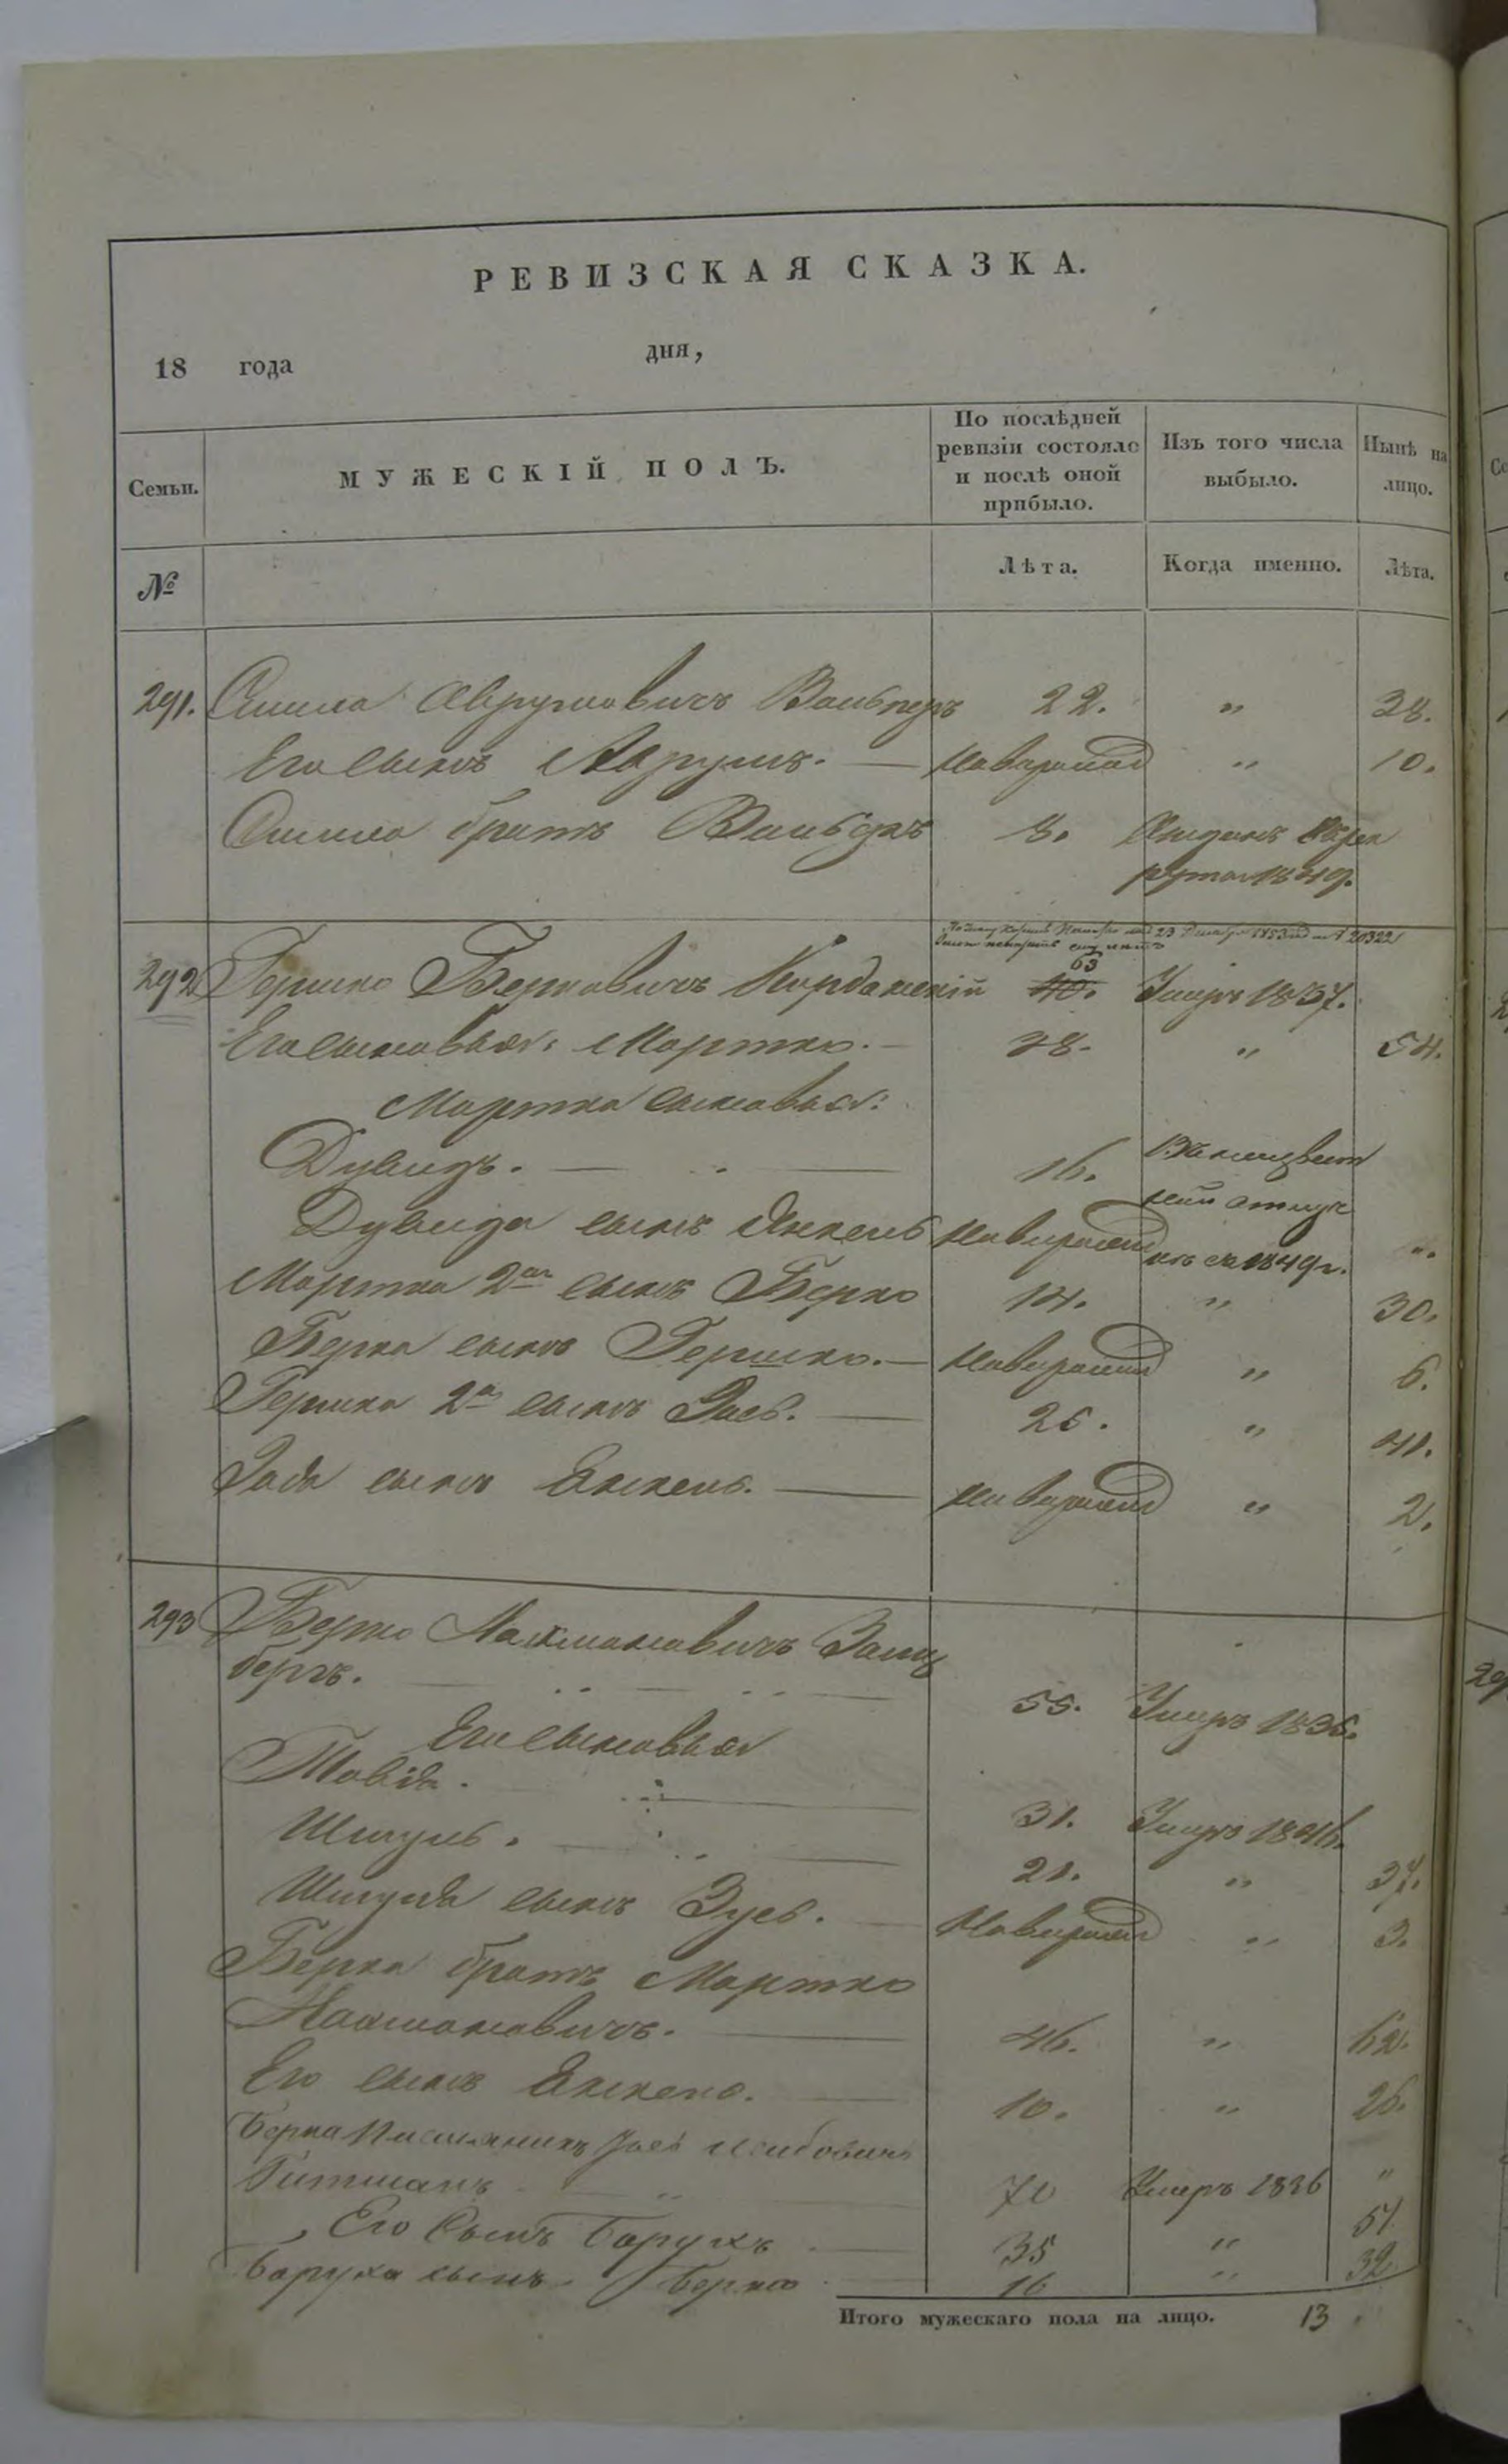 РЕВИЗСКАЯ СКАЗКА.
18 года дня,
Семьи. МУЖЕСКІЙ ПОЛЪ. По послѣдней ревизіи состояло и послѣ оной прибыло. Изъ того числа выбыло. Нынѣ на лицо.
№ Лѣта. Когда именно. Лѣта.
291. Аврумовичъ 22. " 38.
Его сынъ Аврумъ. — новорожд " 10.
братъ 8. рута 1849.
23 1853 20322
63
292 Гершко Берковичъ 40. Умеръ 1837.
Его сыновья: Мортко. — 38. " 54.
Мортка сыновья:
Дувидъ. — 16.
Дувида сынъ Янкель новорожд 1849 г. "
Мортка 2й сынъ Берко 14. " 30.
Берка сынъ Гершко. — новорожд " 6.
Гершка 2й сынъ — 25. " 41.
сынъ Янкель. — новорожд " 2.
293 Берко Нахмановичъ Залц
бергъ. — 55. Умеръ 1836.
Его сыновья
31. Умеръ 1846.
Шмуль. — 21. " 37.
Шмуля сынъ Зусь. — новорожд " 3.
Берка братъ Мортко
Нахмановичъ. — 46. " 62.
Его сынъ Янкель. — 10. " 26.
Берка племянникъ
70 Умеръ 1836 "
Его сынъ Борухъ — 35 " 51
Боруха сынъ Берко — 16 " 32
Итого мужескаго пола на лицо. 13